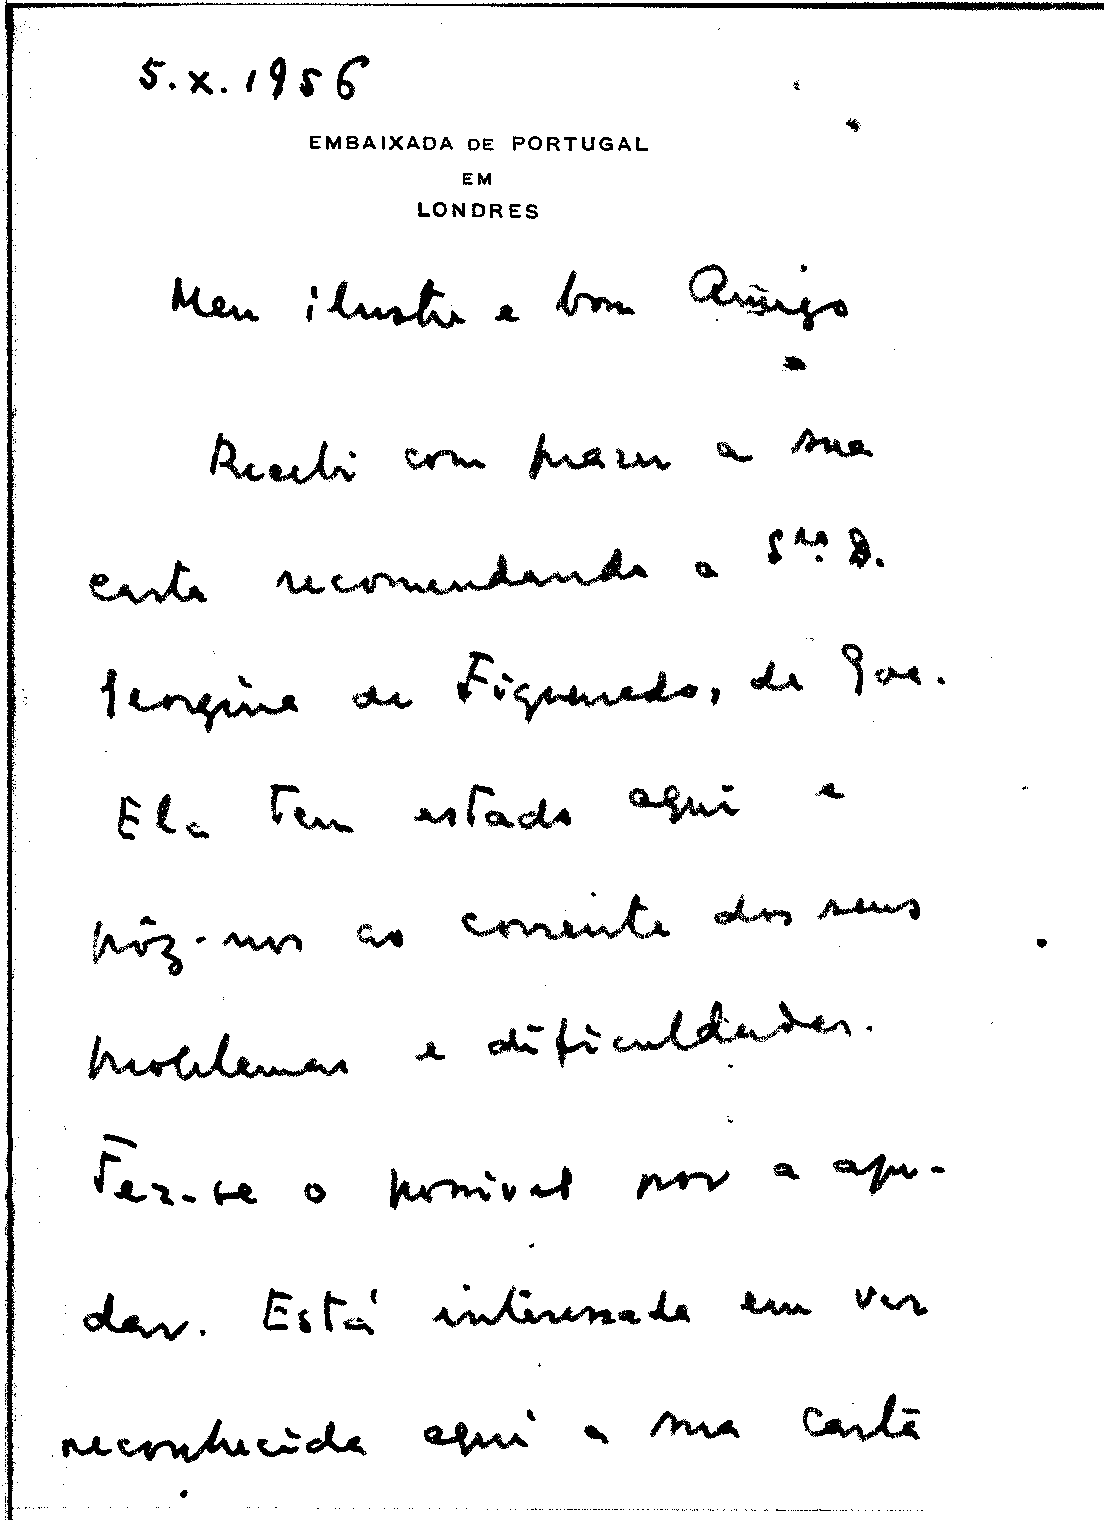 5.X.1956
EMBAIXADA DE PORTUGAL
EM
LONDRES
Meu ilustre e bom Amigo
Recebi com prazer a sua
carta recomendando a Sra. D.
Georgina de Figueredo, de Goa.
Ela tem estado aqui e
pôz-nos ao corrente dos seus
problemas e dificuldades.
Fez-se o possivel por a aju-
dar. Está interessada em ver
reconhecida aqui a sua carta